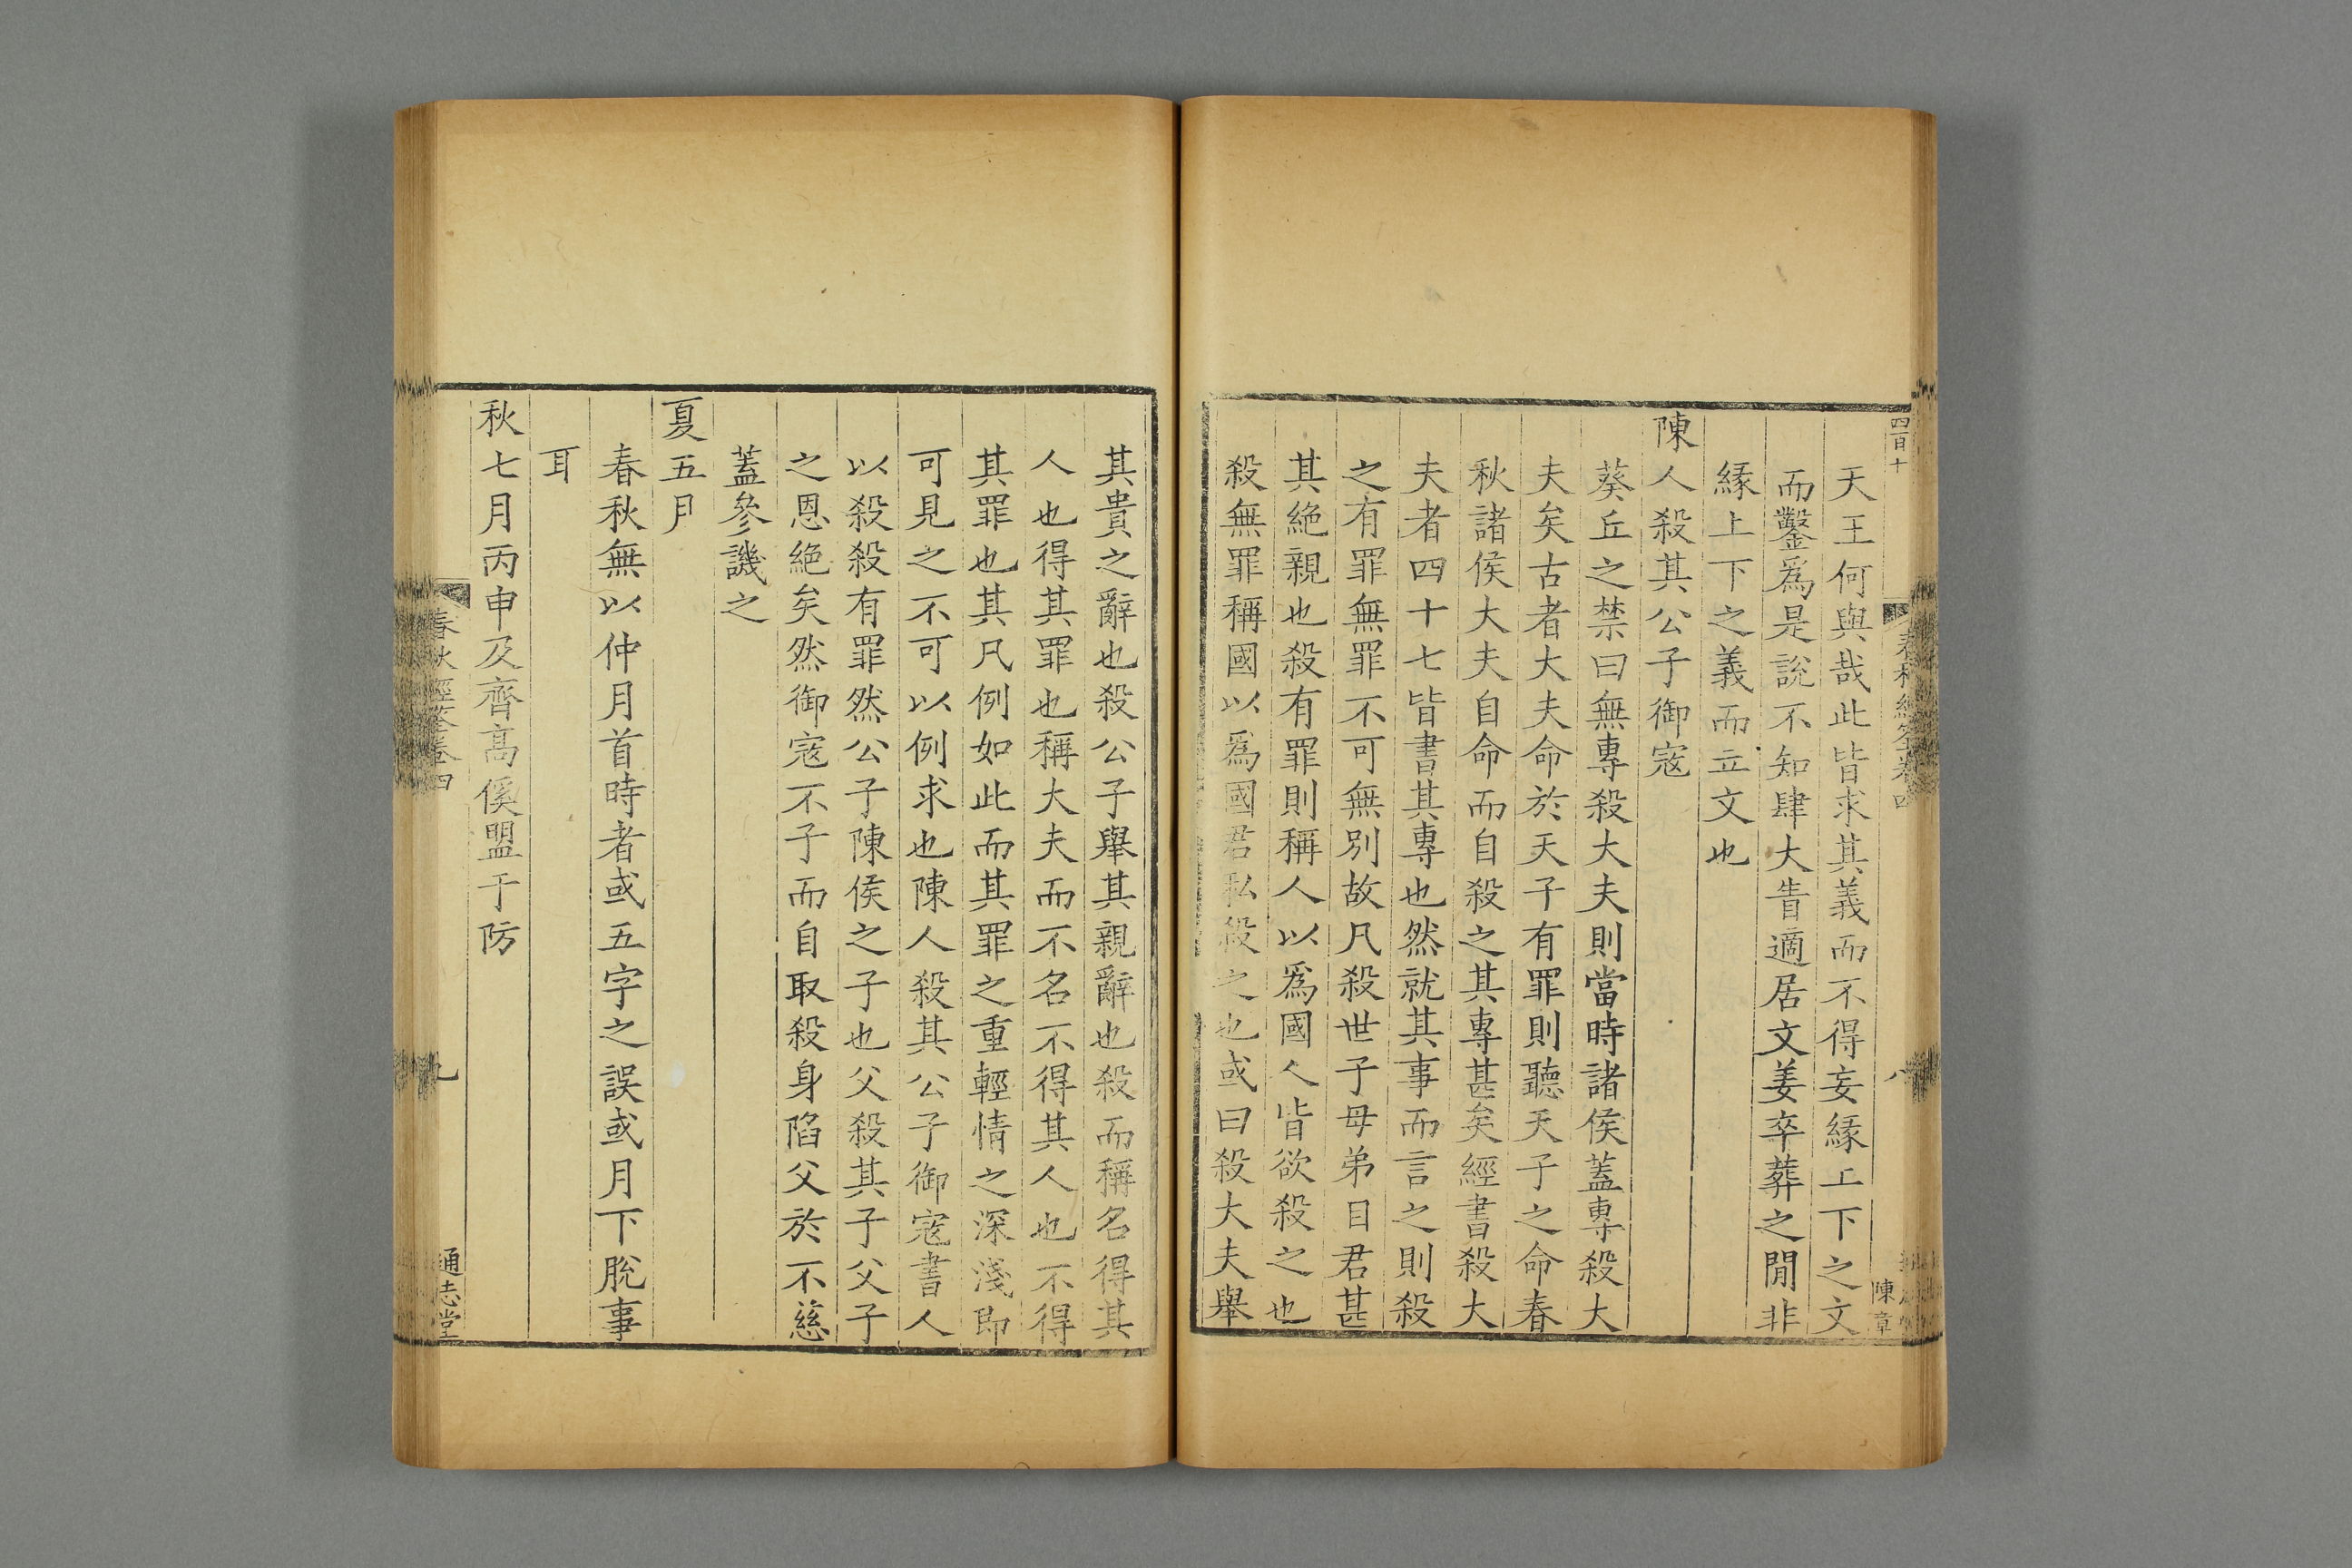 四百十
春秋經筌卷四
八
陳章
天王何與哉此皆求其義而不得妄緣上下之文
而鑿爲是說不知肆大眚適居文姜卒葬之閒非
緣上下之義而立文也
陳人殺其公子御寇
葵丘之禁曰無專殺大夫則當時諸侯蓋專殺大
夫矣古者大夫命於天子有罪則聽天子之命春
秋諸侯大夫自命而自殺之其專甚矣經書殺大
夫者四十七皆書其專也然就其事而言之則殺
之有罪無罪不可無別故凡殺世子母弟目君甚
其絕親也殺有罪則稱人以爲國人皆欲殺之也
殺無罪稱國以爲國君私殺之也或曰殺大夫舉
其貴之辭也殺公子舉其親辭也殺而稱名得其
人也得其罪也稱大夫而不名不得其人也不得
其罪也其凡例如此而其罪之重輕情之深淺即
可見之不可以例求也陳人殺其公子御寇書人
以殺殺有罪然公子陳侯之子也父殺其子父子
之恩絕矣然御寇不子而自取殺身陷父於不慈
蓋參譏之
夏五月
春秋無以仲月首時者或五字之誤或月下脫事
耳
秋七月丙申及齊高傒盟于防
春秋經筌卷四
九
通志堂